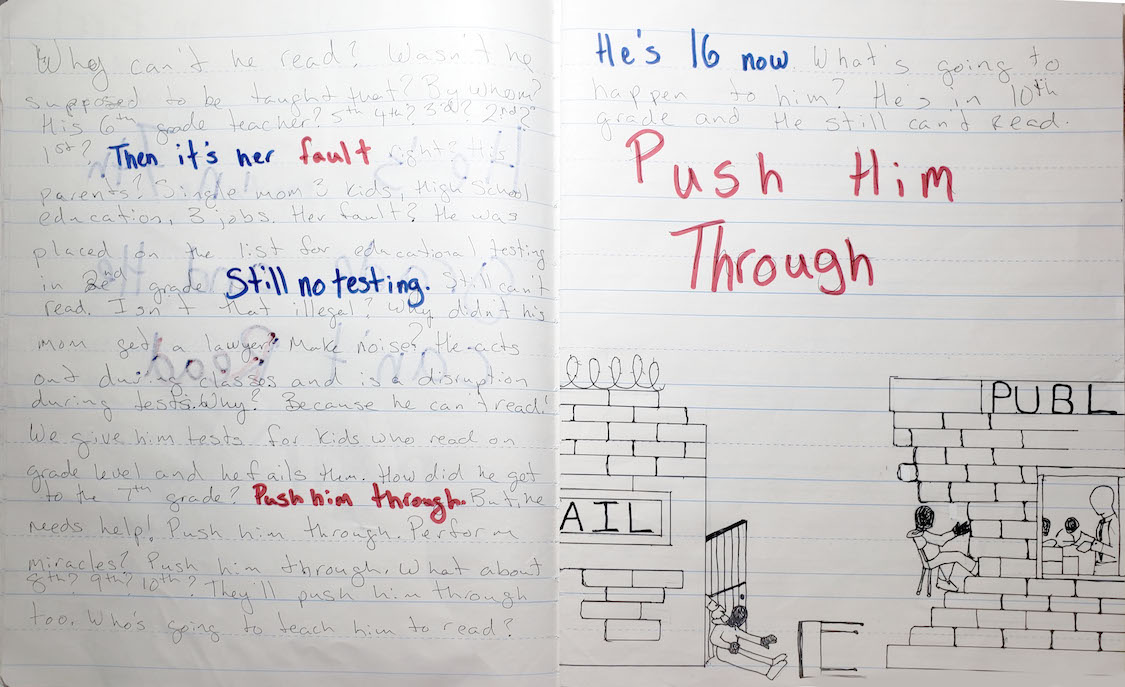 Why can't he read? Wasn't he
supposed to be taught that? By whom?
His 6th grade teacher? 5th 4th? 3rd? 2nd?
1st? Then it's her fault right? His
parents? Single mom 3 kids, High School
education, 3 jobs. Her fault? He was
placed on the list for educational testing
in 2nd grade Still no testing. Still can't
read. Isn't that illegal? Why didn't his
mom get a lawyer? Make noise? He acts
out during classes and is a disruption
during tests. Why? Because he can't read!
We give him tests for kids who read on
grade level and he fails them. How did he get
to the 7th grade? Push him through. But, he
needs help! Push him through. Perform
miracles? Push him through. What about
8th? 9th? 10th? They'll push him through
too. Who's going to teach him to read?
He's 16 now. What's going to
happen to him? He's in 10th
grade and He still can't Read.
Push Him
Through
PUBL
AIL